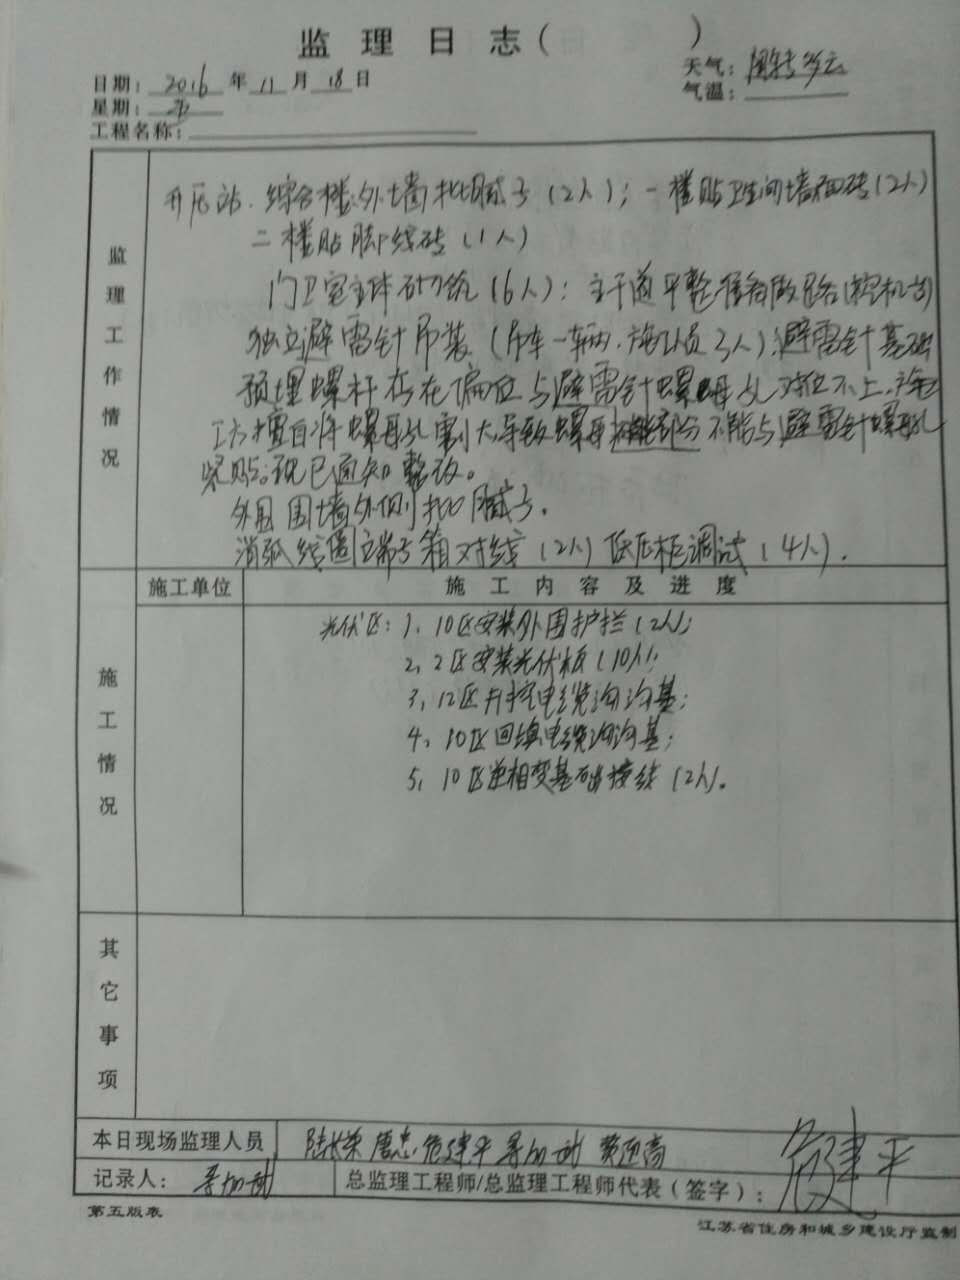 监理日志( )
日期: 2016 年 11 月 18 日
天气: 阴转多云
星期: 五
气温:
工程名称:
监理工作情况
升压站.综合楼:外墙批腻子(2人);一楼贴卫生间墙面砖(2人)
二楼贴脚线砖(1人)
门卫室主体砌筑(6人);主干道平整准备做路(挖机1台)
独立避雷针吊装(吊车一辆.施工人员3人);避雷针基础
预埋螺杆存在偏位与避雷针螺母孔对位不上.施
工方擅自将螺母孔割大导致螺母 部分不能与避雷针螺母孔
紧贴。现已通知整改。
外围围墙外侧批腻子.
消弧线圈主端子箱对线(2人)低压柜调试(4人).
施工单位
施工内容及进度
施工情况
光伏区:1、10区安装外围护栏(2人);
2、2区安装光伏板(10人);
3、12区开挖电缆沟沟基;
4、10区回填电缆沟沟基;
5、10区逆相变基础接线(2人).
其它事项
本日现场监理人员 陆长荣 唐忠 危建平 黄迎高
记录人:
总监理工程师/总监理工程师代表(签字): 危建平
第五版表
江苏省住房和城乡建设厅监制